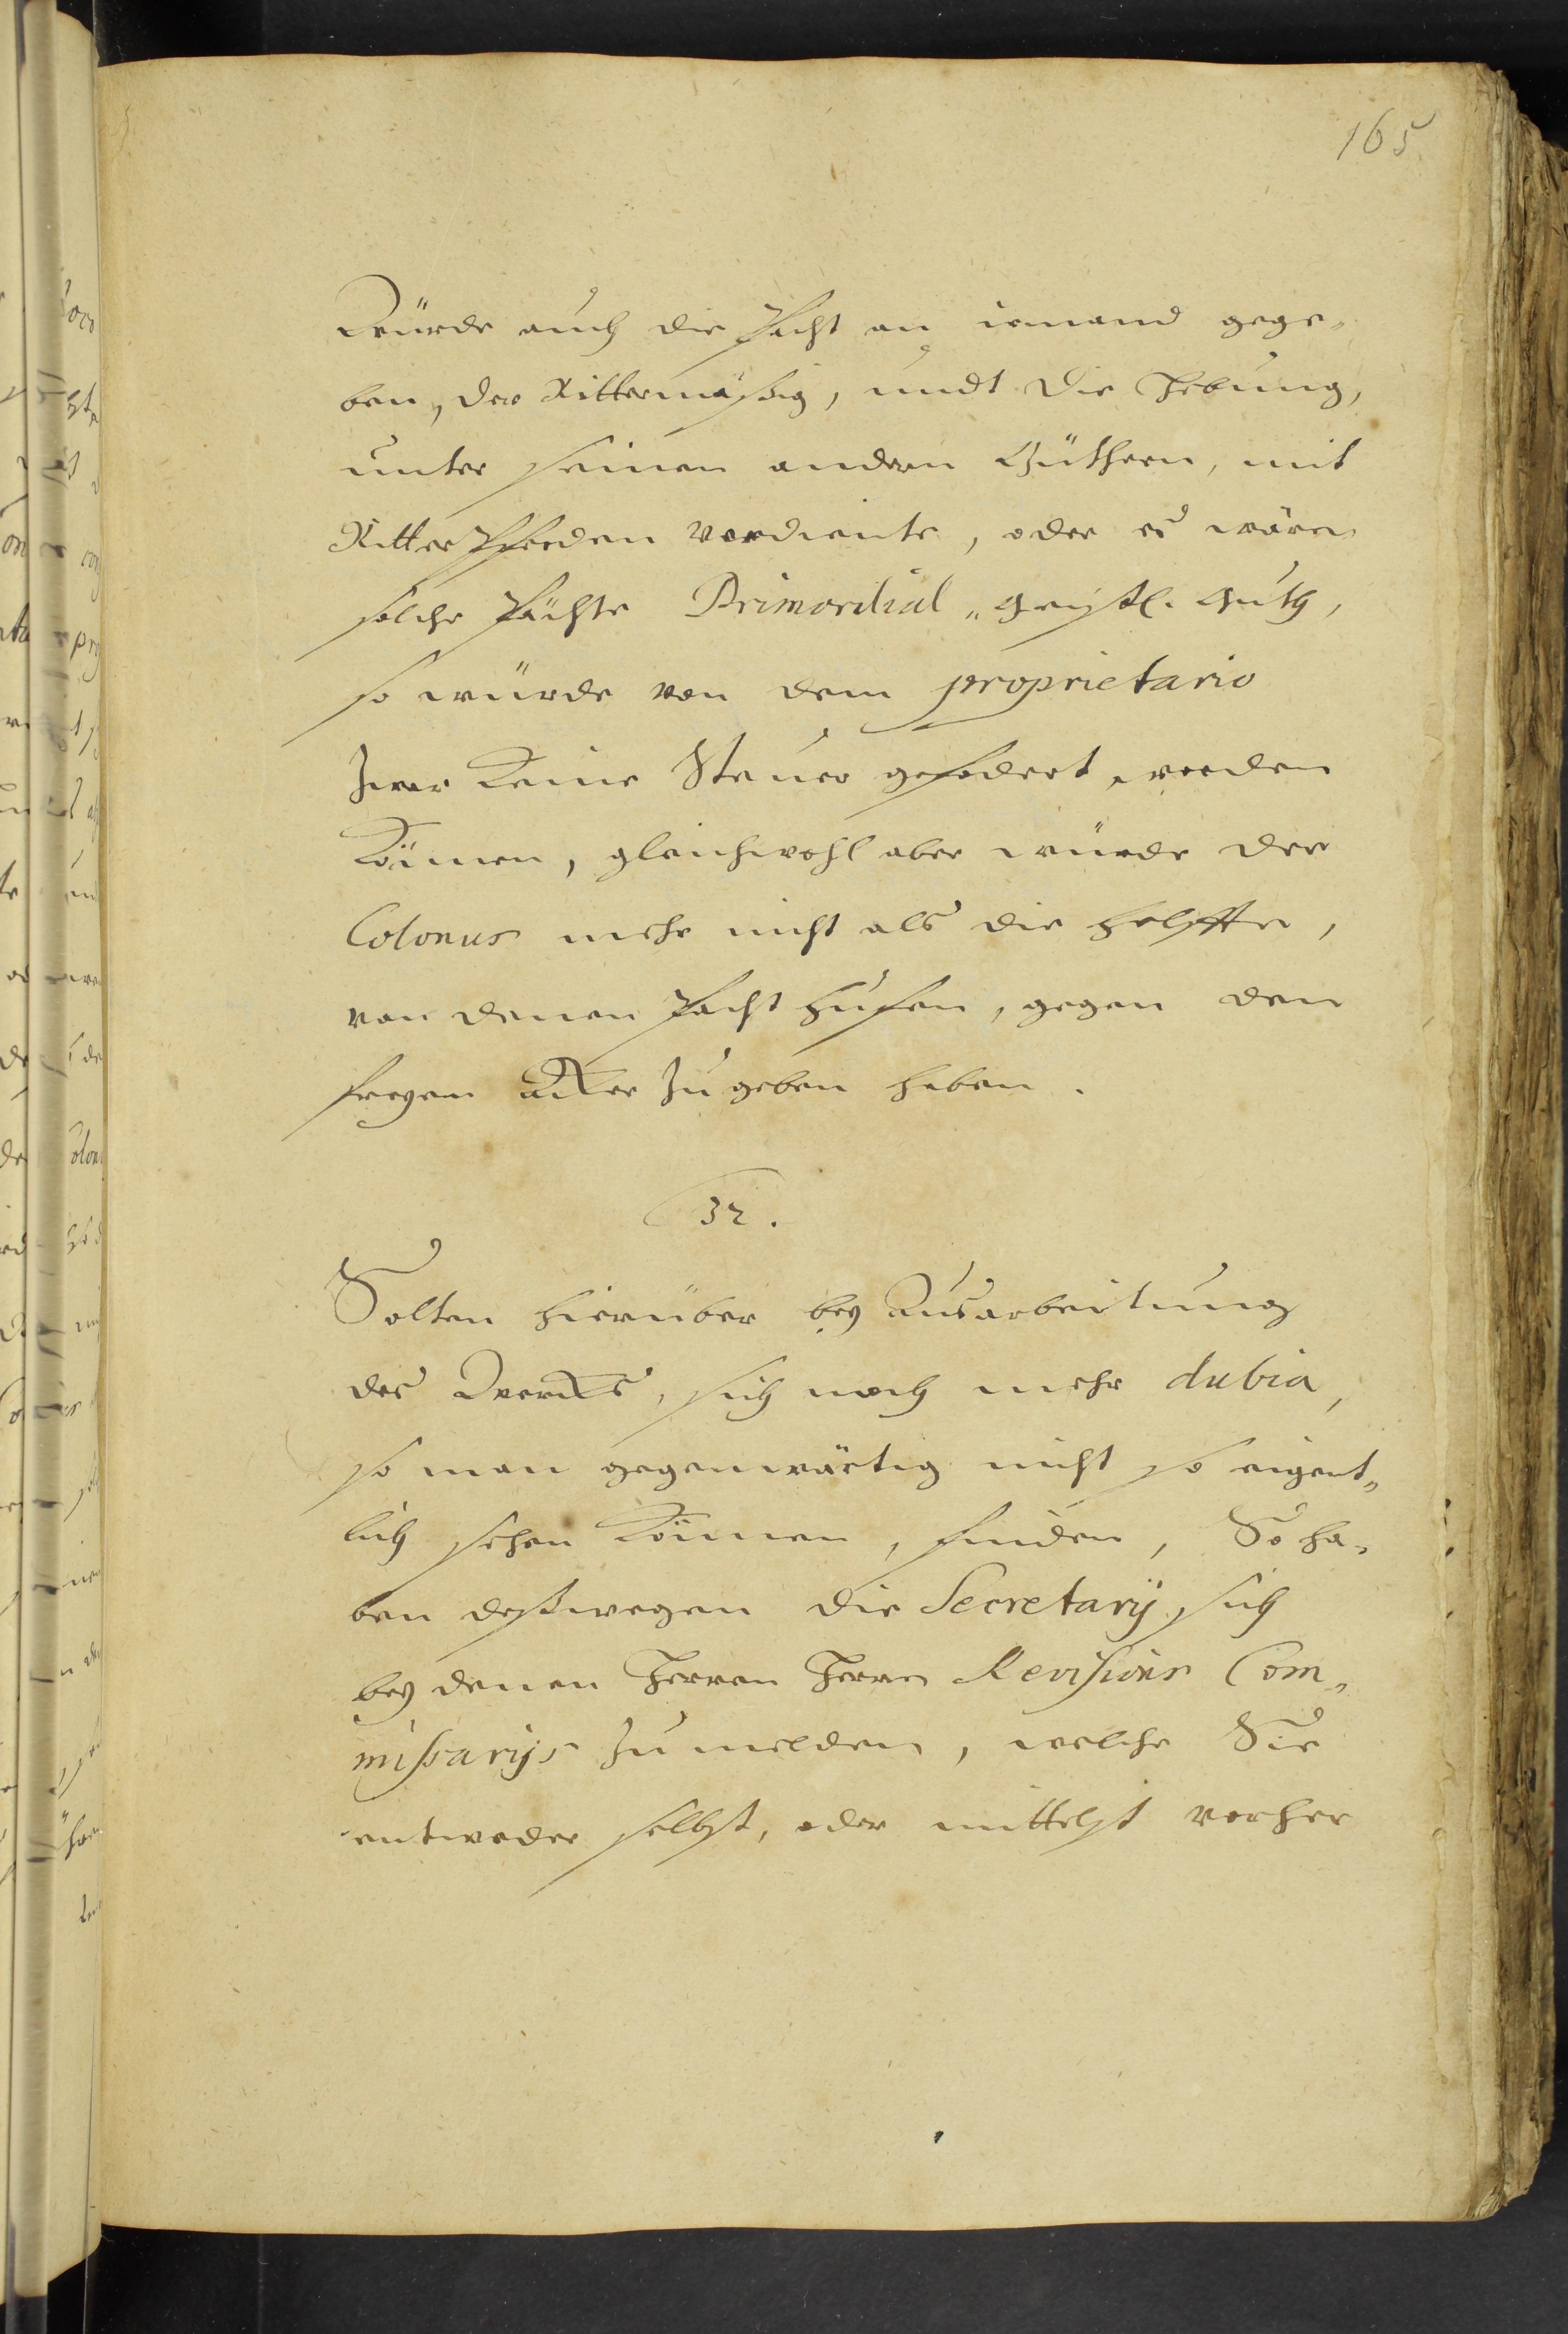 165
Würde auch die Pacht an iemand gege-
ben, der Rittermäßig, undt die Hebung,
unter seinen andern Güthern, mit
Ritter Pferden verdiente, oder es wären
solche Pächte Primordial „ geistl. Guth,
so würde von dem proprietario
zwar Keine Steuer gefodert werden
Können, gleichwohl aber würde der
Colonus mehr nicht als die helffte,
von denen Pacht Hufen, gegen den
freyen Acker zu geben haben.
32.
Solten hierüber bey Ausarbeitung
des Wercks, sich noch mehr dubia,
so man gegenwärtig nicht so eigent„
lich sehen Können, finden, So ha„
ben deßwegen die Secretarij sich
bey denen Herren Herren Revisions Com„
mißarijs zu melden, welche Sie
entweder selbst, oder mittelst vorher